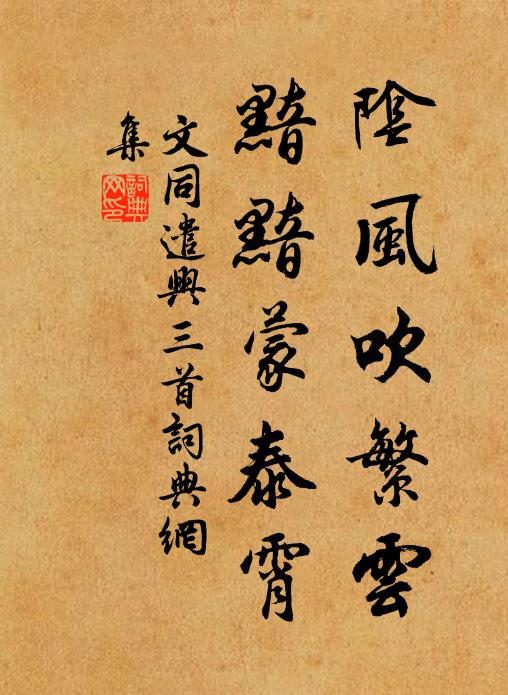 陰風吹繁雲
黯黯蒙泰霄
文同遣興三首詞典網
集
詞典
网印